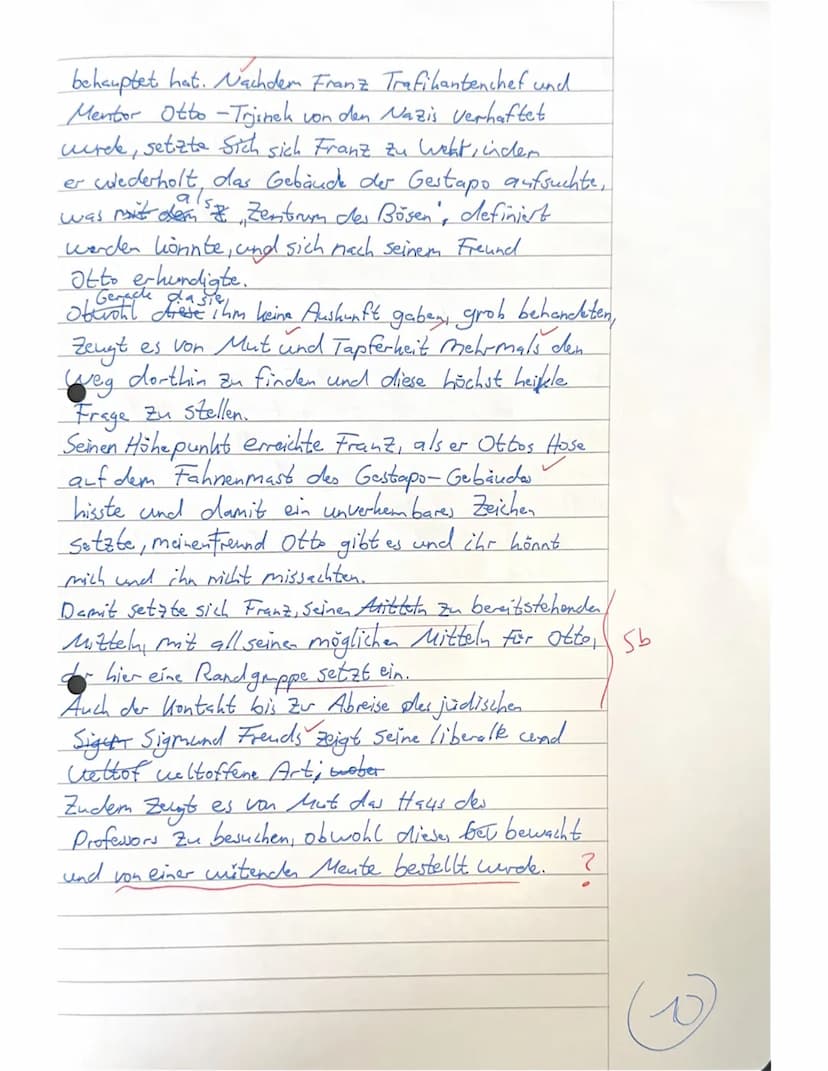 behauptet hat. Nachdem Franz Trafikantenchef und
Mentor Otto-Trjinek von den Nazis verhaftet
wurde, setzte sich sich Franz zu Wehr, indem
er wiederholt, das Gebäude der Gestapo aufsuchte,
was mit dem als „Zentrum des Bösen", definiert
werden könnte, und sich nach seinem Freund
Otto erkundigte.
Gerade da sie
Obwohl diese ihm keine Auskunft gaben, grob behandelten,
Zeugt es von Mut und Tapferkeit mehrmals den
Weg dorthin zu finden und diese höchst heikle
Frage zu stellen.
Seinen Höhepunkt erreichte Franz, als er Ottos Hose
auf dem Fahnenmast des Gestapo-Gebäudes
hisste und damit ein unverkennbares Zeichen
setzte, meinen Freund Otto gibt es und ihr könnt
mich und ihn nicht missachten.
Damit setzte sich Franz, seinen Mitteln zu bereitstehenden
Mitteln, mit all seinen möglichen Mitteln für Otto, Sb
der hier eine Randgruppe setzt ein.
Auch der Kontakt bis zur Abreise des jüdischen
Sigmund Freuds zeigt seine liberale und
Weltof weltoffene Art; wobei
Zudem zeugt es von Mut das Haus des
Professors zu besuchen, obwohl dieses bewacht
und von einer wütenden Meute bestellt wurde. ?
10